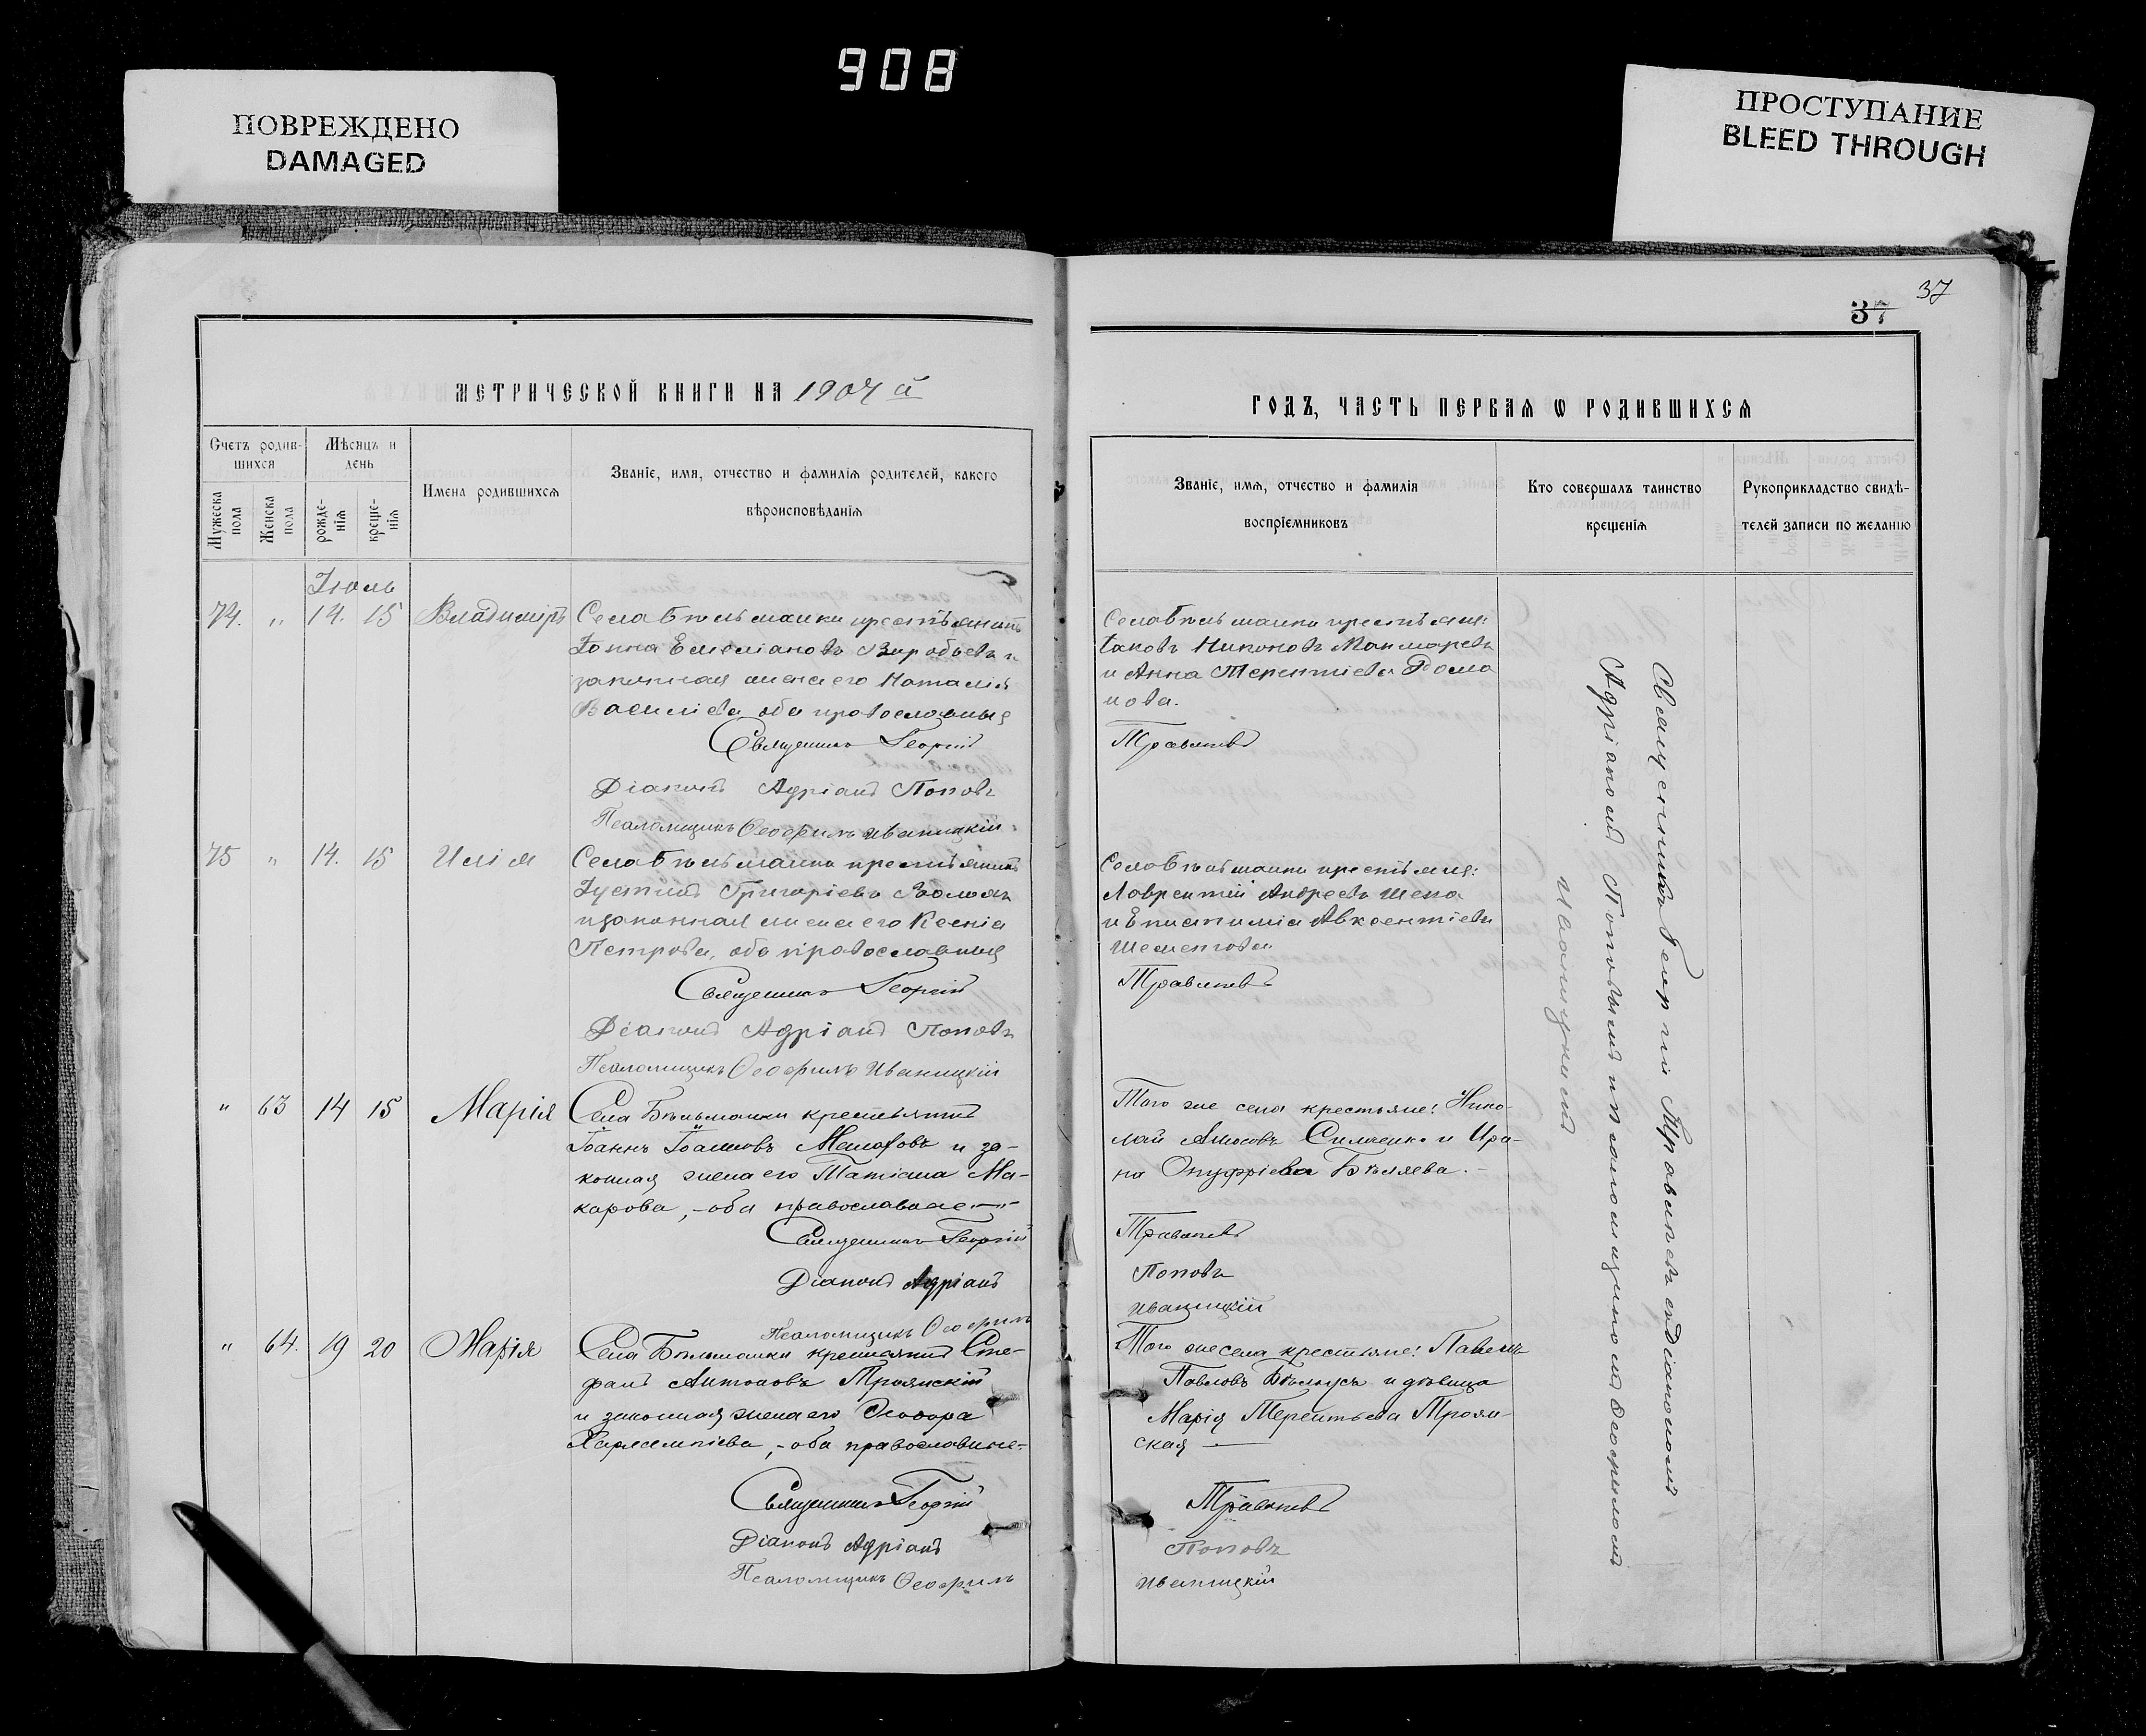 908
ПОВРЕЖДЕНО
DAMAGED
ПРОСТУПАНИЕ
BLEED THROUGH
37
37
МЕТРИЧЕСКОЙ КНИГИ НА 1904 й
Счетъ родив-
шихся
Мѣсяцъ и
день
Мужеска
пола
Женска
пола
рожде-
нія
креще-
нія
Имена родившихся
Званіе, имя, отчество и фамилія родителей, какого
вѣроисповѣданія
Іюль
74. „ 14. 15 Владиміръ Села Бѣльманки крестьянинъ
Емеліановъ и
законная жена его Наталія
Василіева оба православныя
Священникъ Георгій
Діаконъ Адріанъ Поповъ
Псаломщикъ Ѳеофилъ Иваницкій
75 „ 14. 15 Илія Села Бѣльманки крестьянинъ
Іустинъ Григоріевъ
и законная жена его Ксенія
Петрова, оба православныя
Священникъ Георгій
Діаконъ Адріанъ Поповъ
Псаломщикъ Ѳеофилъ Иваницкій
„ 63 14 15 Марія Села Бѣльманки крестьянинъ
Іоаннъ Іоанновъ и за-
конная жена его Татіана Ма-
карова, - оба православные
Священникъ Георгій
Діаконъ Адріанъ
Псаломщикъ Ѳеофилъ
„ 64. 19 20 Марія Села Бѣльманки крестьянинъ Сте-
фанъ Антоновъ Троянскій
и законная жена его Ѳеодора
Харлампіева, - оба православные.
Священникъ Георгій
Діаконъ Адріанъ
Псаломщикъ Ѳеофилъ
ГОДЪ, ЧАСТЬ ПЕРВАЯ Ѡ РОДИВШИХСЯ
Званіе, имя, отчество и фамилія
воспріемниковъ
Кто совершалъ таинство
крещенія
Рукоприкладство свидѣ-
телей записи по желанію
Села Бѣльманки крестьяне:
Іаковъ Никоновъ
и Анна Терентіева Рома
нова.
Травинъ
Села Бѣльманки крестьяне:
Лаврентій Андреевъ
и Авксентіева
Травинъ
Того же села крестьяне: Нико-
лай и Ири-
на Онуфріева Бѣляева.
Травинъ
Поповъ
Иваницкій
Того же села крестьяне: Павелъ
Павловъ и дѣвица
Марія Терентьева Троян-
ская
Поповъ
Иваницкій
Священникъ Георгій съ діакономъ
Адріаномъ Поповымъ и псаломщикомъ Ѳеофиломъ
Иваницкимъ